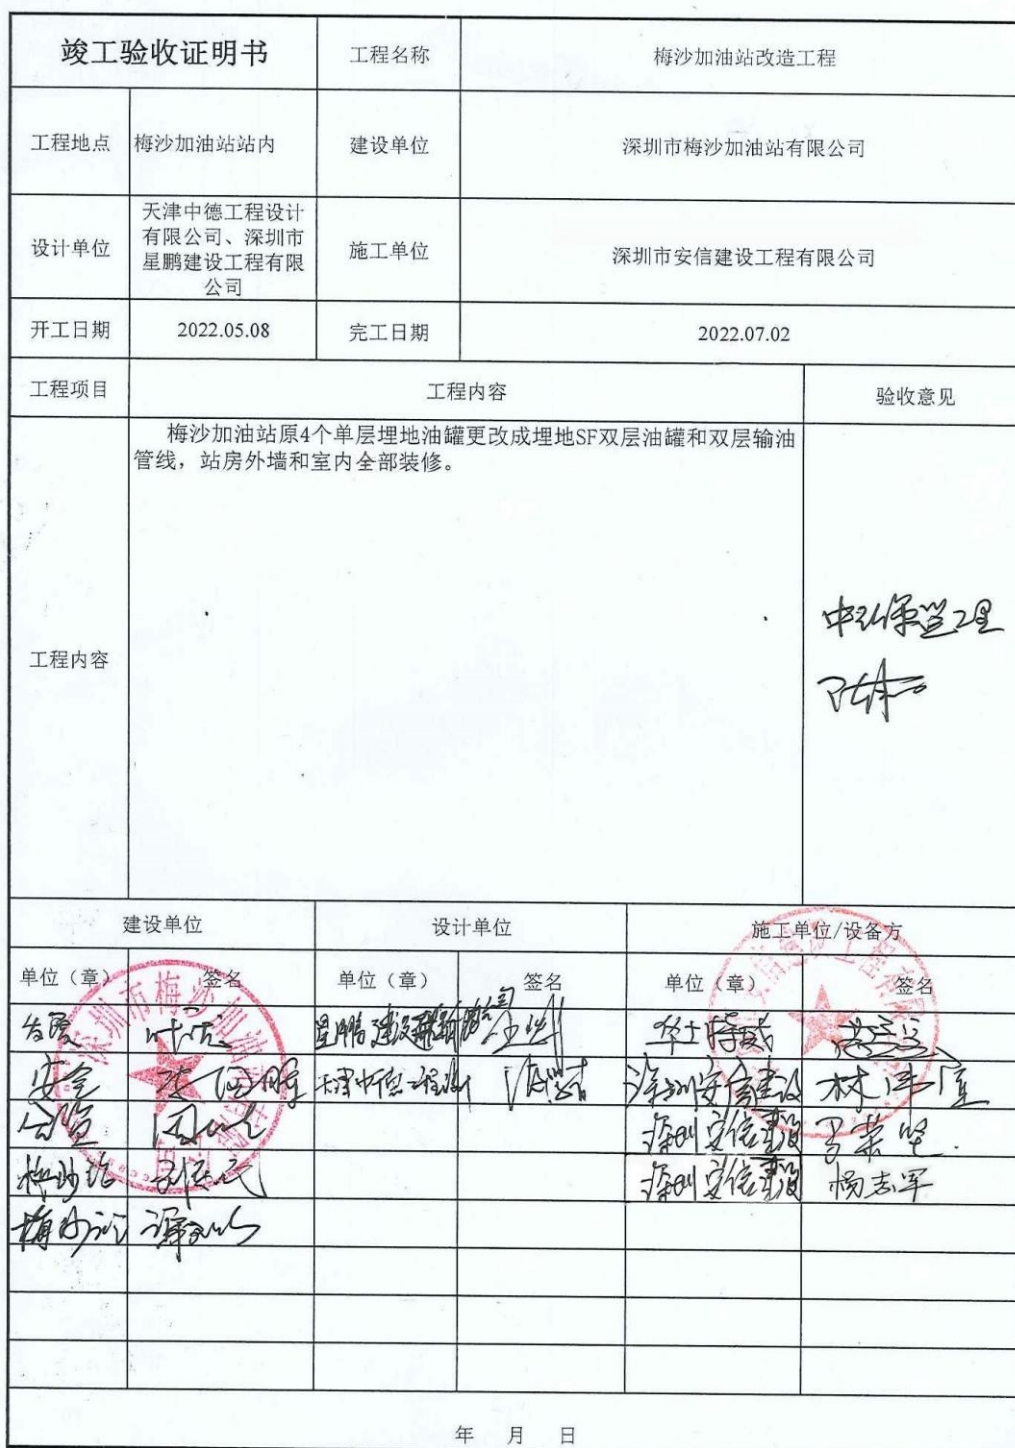 竣工验收证明书
工程名称
梅沙加油站改造工程
工程地点
梅沙加油站站内
建设单位
深圳市梅沙加油站有限公司
设计单位
天津中德工程设计
有限公司、深圳市
星鹏建设工程有限
公司
施工单位
深圳市安信建设工程有限公司
开工日期
2022.05.08
完工日期
2022.07.02
工程项目
工程内容
验收意见
梅沙加油站原4个单层埋地油罐更改成埋地SF双层油罐和双层输油
管线，站房外墙和室内全部装修。
工程内容
建设单位
设计单位
施工单位/设备方
单位（章）
签名
单位（章）
签名
单位（章）
签名
安全
深圳安信建设
深圳安信建设
罗荣坚
深圳安信建设
杨志军
年 月 日